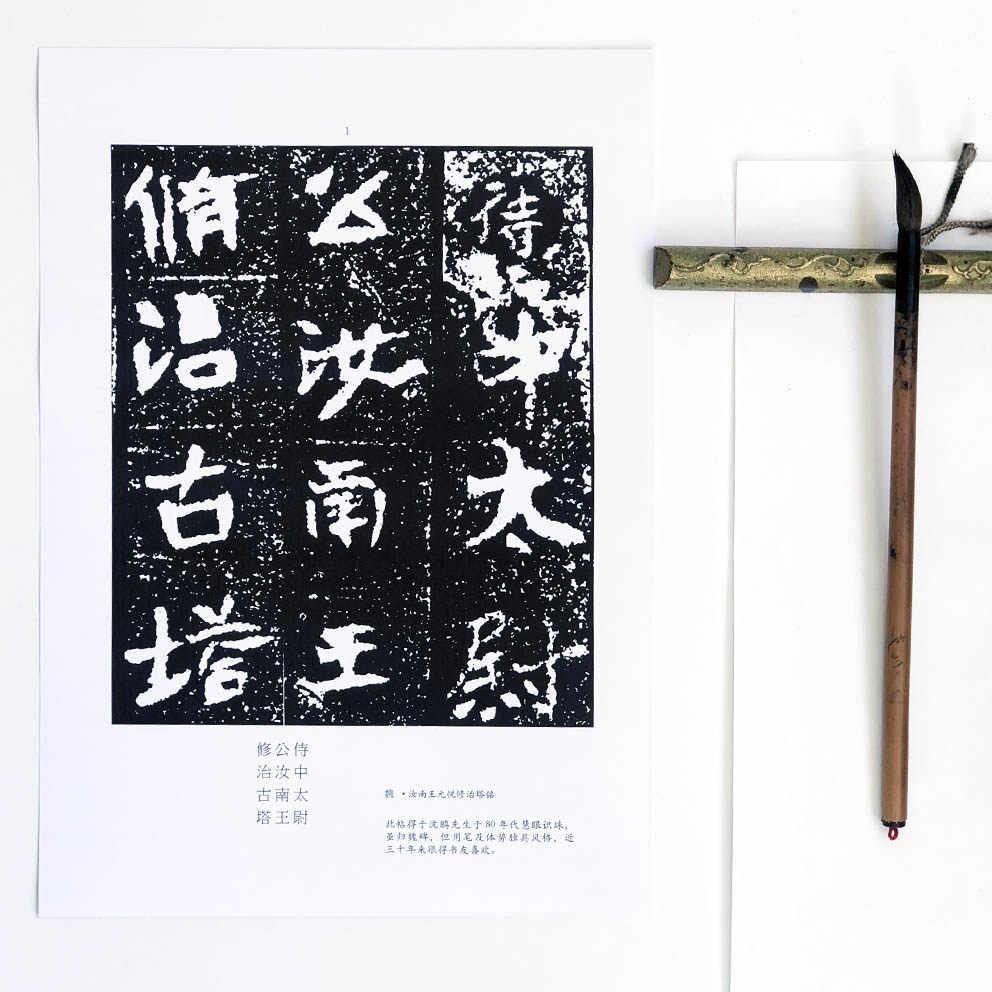 1
侍中太尉
公汝南王
脩治古塔
侍中太尉
公汝南王
修治古塔
魏·汝南王元悦修治塔铭
此帖得于沈鹏先生于80年代慧眼识珠,
虽归魏碑,但用笔及体势独具风格,近
三十年来很得书友喜欢。